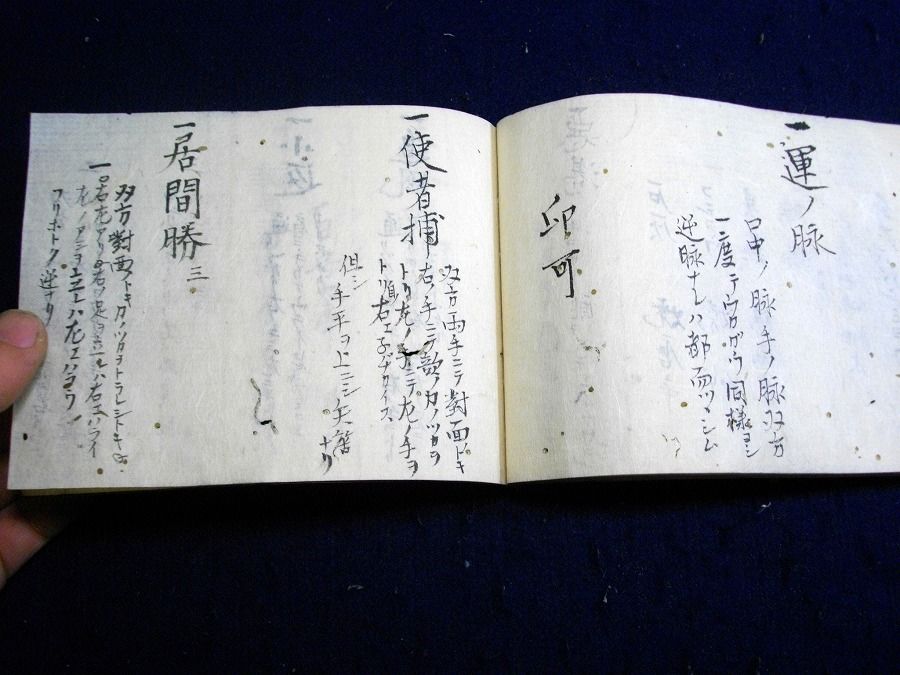 一運ノ脉
口中ノ脉手ノ脉双方
一度ニテウカガウ同様ヨシ
逆脉ナレハ都而ツヽシム
印可
一使者捕
双方両手ニテ對面ドキ
右ノ手ニテ敵ノ刀ノツカヲ
トリ左ノ手ニテ左ノ手ヲ
トリ順右エ子ヂカイス
但シ手平ヲ上ニシ矢筈
ナリ
一居間勝 三
双方對面ノトキカノツカヲトラレシトキハ
一右左アリ右ノ足ヲ立レハ右エハライ
左ノアシヲ立レハ左エハラウ
フリホトク逆ナリ